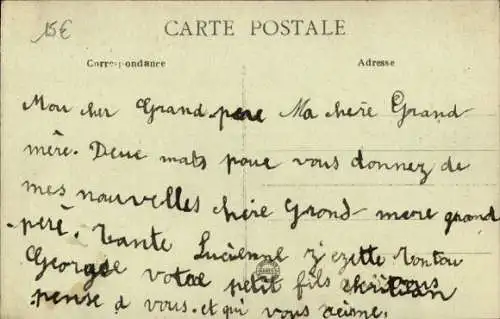 15€
CARTE POSTALE
Correspondance
Adresse
Mon cher Grand pere Ma chere Grand
mère. Deue mats poue vous donnez de
mes nouvelles chère Grond-mere grand
-père. Tante Lucienne z'ezette tonton
George votre petit fils
pense a vous. et qui vous aeime.